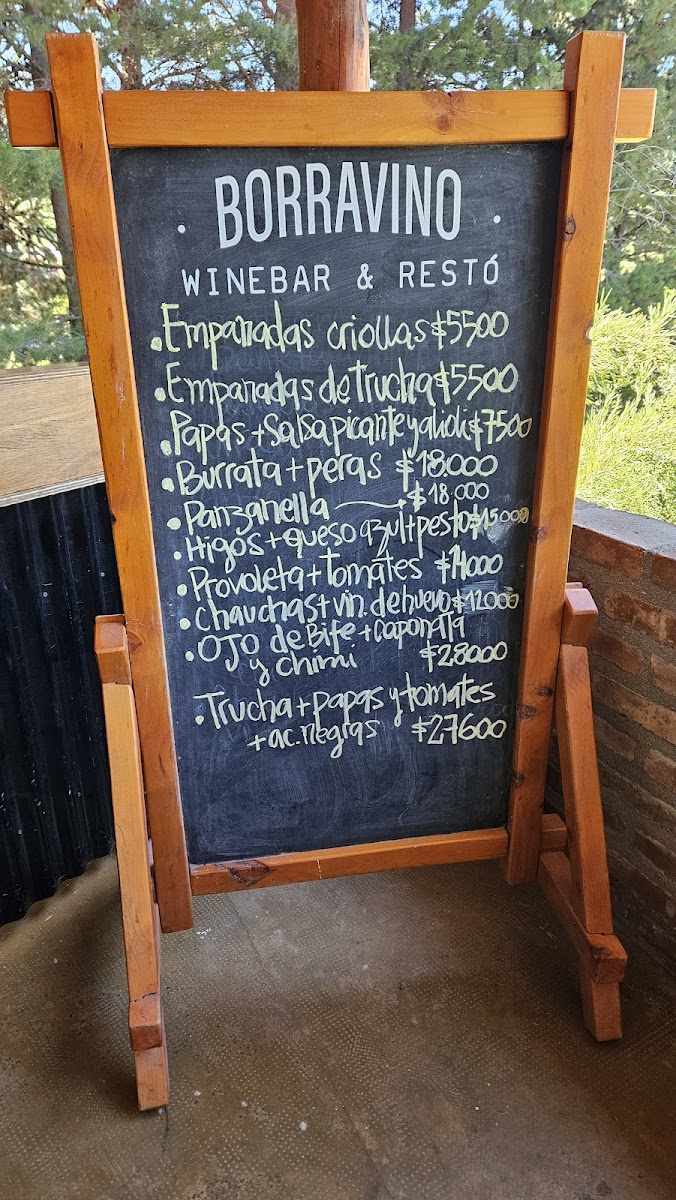 · BORRAVINO ·
WINEBAR & RESTÓ
. Empanadas criollas $5500
. Empanadas de trucha $5500
. Papas + Salsa picante y alioli $7500
. Burrata + peras $18.000
. Panzanella $18.000
. Higos + queso azul + pesto $15.000
. Provoleta + tomates $14000
. chauchas + vin. de huevo $12.000
. OJO de Bife + caponata
y chimi $28000
. Trucha + papas y tomates
+ ac. negras $27600